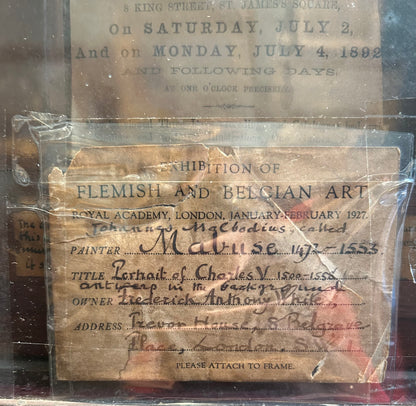 8 KING STREET, ST. JAMES'S SQUARE,
On SATURDAY, JULY 2,
And on MONDAY, JULY 4, 1892
AND FOLLOWING DAYS,
AT ONE O'CLOCK PRECISELY.
EXHIBITION OF
FLEMISH AND BELGIAN ART
ROYAL ACADEMY, LONDON, JANUARY-FEBRUARY 1927.
Johannes Malbodius, called
PAINTER Mabuse 1472-1553
TITLE Portrait of Charles V 1500-1558
antwerp in the background
OWNER Frederick Anthony White,
ADDRESS Trevor House, 8 Belgrave
Place, London, S.W.
PLEASE ATTACH TO FRAME.